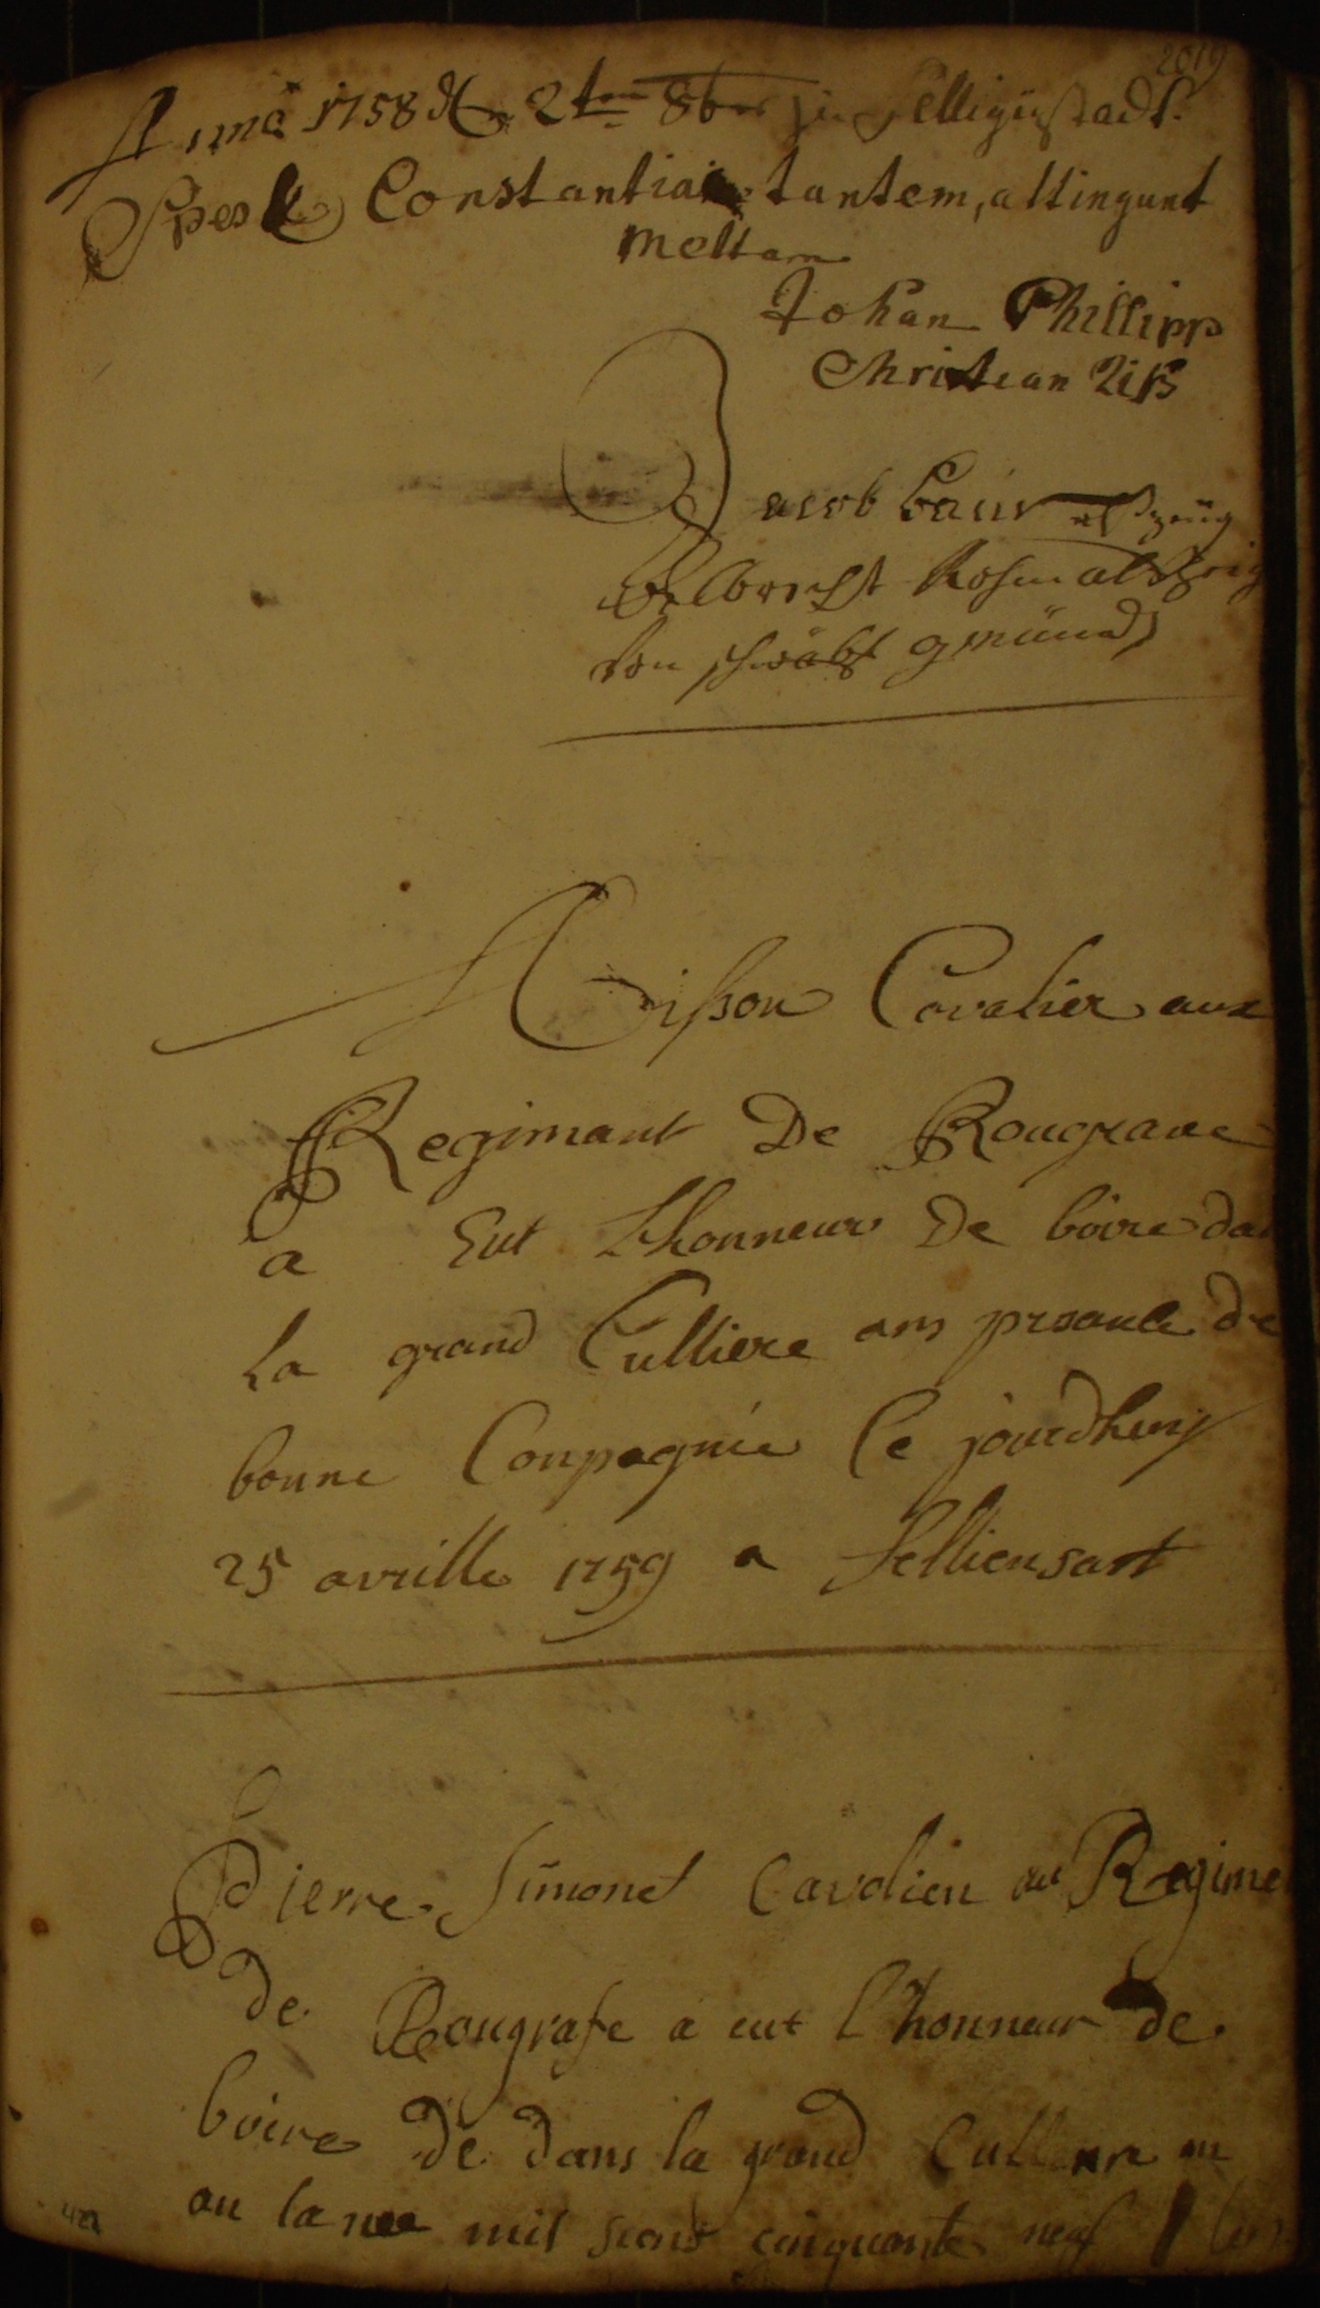 2019
Anno 1758 d 2ten 8ber zu Selligustadt.
Spes & Constantia tantem, attingunt
mettam
Johan Phillipp
Christian Zisß
Jacob baur alß zeüg
Albrecht als zeig
von schwäbs gmünd
Disson Cavalier aux
Regimant De Rougrave
a Eut Lhonneur De boire da
La grand Culliere ans presance de
bonne Conpagnie Ce jourdhuy
25 avrille 1759 a Selliensart
Pierre Simonet Cavalier au Regime
de Rougrafe a eut l'honneur de
boire de dans la grand Culliere
au lanee mil scent cinquante neuf